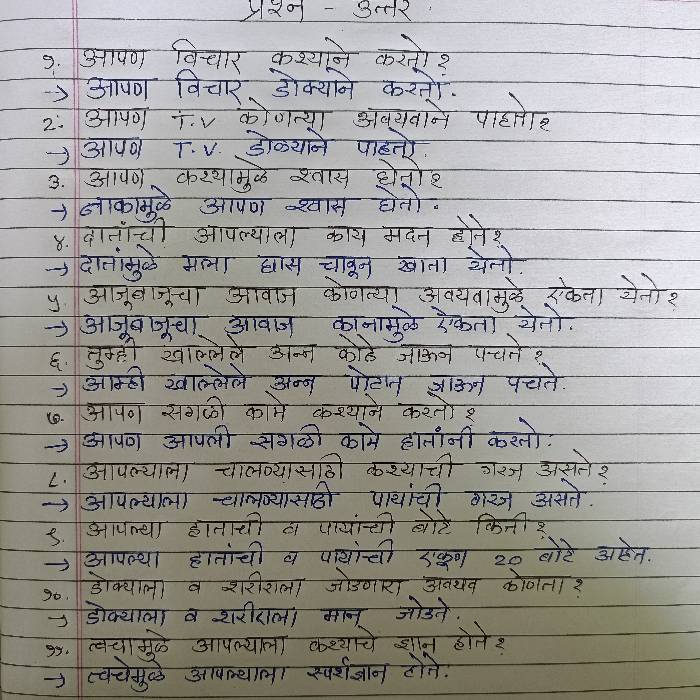 प्रश्न - उत्तर.
१. आपण विचार कश्याने करतो?
→ आपण विचार डोक्याने करतो.
२. आपण T.V कोणत्या अवयवाने पाहतो?
→ आपण T.V. डोळ्याने पाहतो.
३. आपण कश्यामुळे श्वास घेतो?
→ नाकामुळे आपण श्वास घेतो.
४. दातांची आपल्याला काय मदत होते?
→ दातांमुळे मला घास चावून खाता येतो.
५. आजूबाजूचा आवाज कोणत्या अवयवामुळे ऐकता येतो?
→ आजूबाजूचा आवाज कानामुळे ऐकता येतो.
६. तुम्ही खाल्लेले अन्न कोठे जाऊन पचते?
→ आम्ही खाल्लेले अन्न पोटात जाऊन पचते.
७. आपण सगळी कामे कश्याने करतो?
→ आपण आपली सगळी कामे हातांनी करतो.
८. आपल्याला चालण्यासाठी कश्याची गरज असते?
→ आपल्याला चालण्यासाठी पायांची गरज असते.
९. आपल्या हाताची व पायांची बोटे किती?
→ आपल्या हातांची व पायांची एकूण 20 बोटे आहेत.
१०. डोक्याला व शरीराला जोडणारा अवयव कोणता?
→ डोक्याला व शरीराला मान जोडते.
११. त्वचामुळे आपल्याला कश्याचे ज्ञान होते?
→ त्वचेमुळे आपल्याला स्पर्शज्ञान होते.